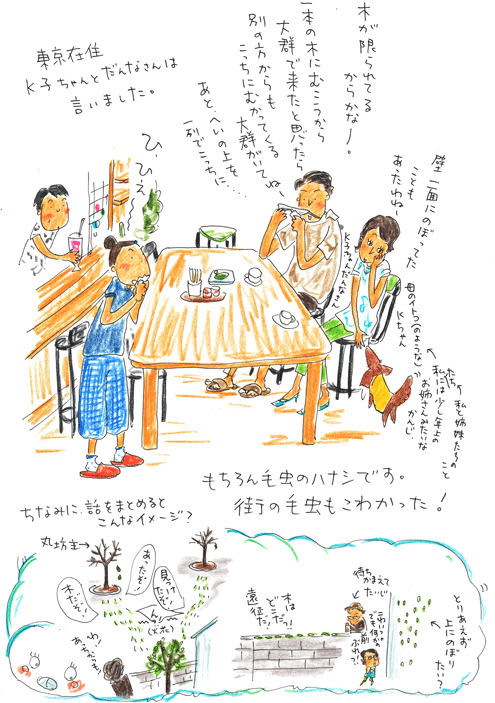 東京在住
K子ちゃんとだんなさんは
言いました。
木が限られてる
からかな〜。
一本の木にむこうから
大群で来たと思ったら
別の方からも
こっちにむかってくる
大群がいてね〜
あと、へいの上を
一列でこっちに…
ひ、ひえ〜
壁一面にのぼってた
ことも
あったわねー
K子ちゃんだんなさん
母のイトコ(のような?)
Kちゃん
私には少し年上の
お姉さんみたいな
かんじ。
たち
私と姉妹たちの
こと
もちろん毛虫のハナシです。
街行の毛虫もこわかった!
ちなみに、話をまとめると
こんなイメージ?
丸坊主→
あったぞ!
見つけ
たぞ!
木だぞ!
わ
あっちからも
木は
どこだっ!
遠征だ!
待ち
かまえて
たいじ
こわいっ。
でも何か
出前
とりあえず
上にのぼり
たいっ